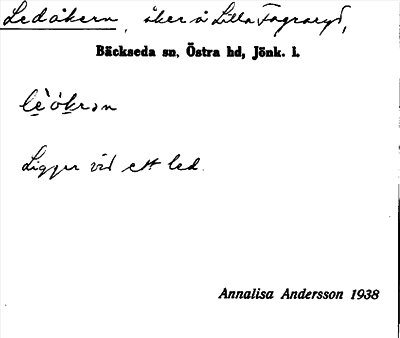 Ledåkern, åker å Lilla Fagraryd,
Bäckseda sn, Östra hd, Jönk. l.
lè̱ òḵrən
Ligger vid ett led.
Annalisa Andersson 1938